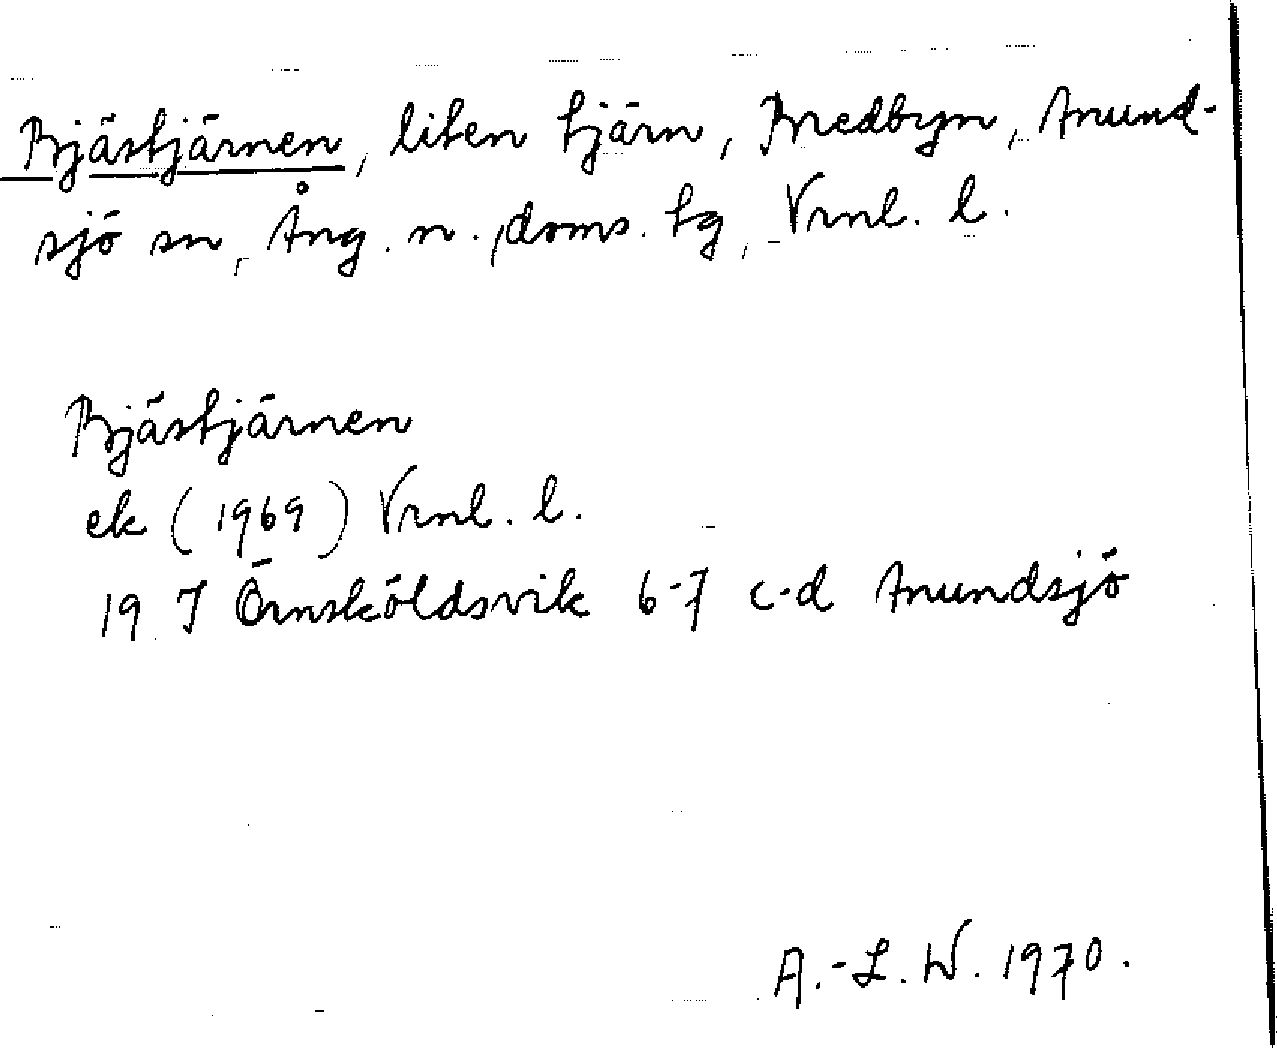 Bjästjärnen, liten tjärn, Bredbyn, Anund-
sjö sn, Ång. n., doms. tg, Vrml. l.
Bjästjärnen
ek (1969) Vrml. l.
19 J Örnsköldsvik 6-7 c-d Anundsjö
A.-L. W. 1970.